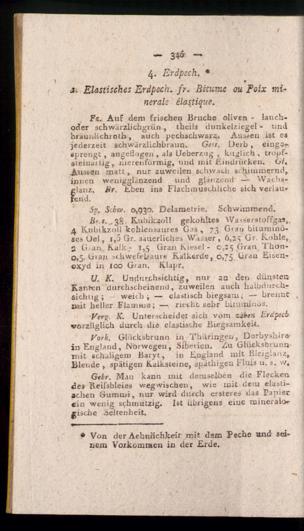 — 346 —
4. Erdpech. *
a. Elastisches Erdpech. fr. Bitume ou Poix mi-
nerale élastique.
Fz. Auf dem frischen Bruche oliven- lauch-
oder schwärzlichgrün, theils dunkelziegel- und
bräunlichroth, auch pechschwarz. Aussen ist es
jederzeit schwärzlichbraun. Ges. Derb, einge-
sprengt, angeflogen, als Ueberzug, kuglich, tropf-
steinartig, nierenförmig, und mit Eindrücken. Gl.
Aussen matt, nur zuweilen schwach schimmernd,
innen wenigglänzend und glänzend — Wachs-
glanz. Br. Eben ins Flachmuschliche sich verlau-
fend.
Sp. Schw. 0,930. Delametrie. Schwimmend.
Bes. 38 Kubikzoll gekohltes Wasserstoffgas,
4 Kubikzoll kohlensaures Gas, 73 Gran bituminö-
ses Oel, 1,5 Gr. säuerliches Wasser, 6,25 Gr. Kohle,
2 Gran Kalk- 1,5 Gran Kiesel- 0,25 Gran Thon-
0,5 Gran schwefelsaure Kalkerde, 0,75 Gran Eisen-
oxyd in 100 Gran. Klapr.
U. K. Undurchsichtig, nur an den dünsten
Kanten durchscheinend, zuweilen auch halbdurch-
sichtig; — weich; — elastisch biegsam; — brennt
mit heller Flamme; — riecht sehr bituminös.
Verg. K. Unterscheidet sich vom zähen Erdpech
vorzüglich durch die elastische Biegsamkeit.
Vork. Glücksbrunn in Thüringen, Derbyshire
in England, Norwegen, Siberien. Zu Glücksbrunn
mit schaligem Baryt, in England mit Bleiglanz,
Blende, spätigen Kalksteine, späthigen Fluss u. s. w.
Gebr. Man kann mit demselben die Flecken
des Reissbleies wegwischen, wie mit dem elasti-
schen Gummi, nur wird durch ersteres das Papier
ein wenig schmutzig. Ist übrigens eine mineralo-
gische Seltenheit.
* Von der Aehnlichkeit mit dem Peche und sei-
nem Vorkommen in der Erde.